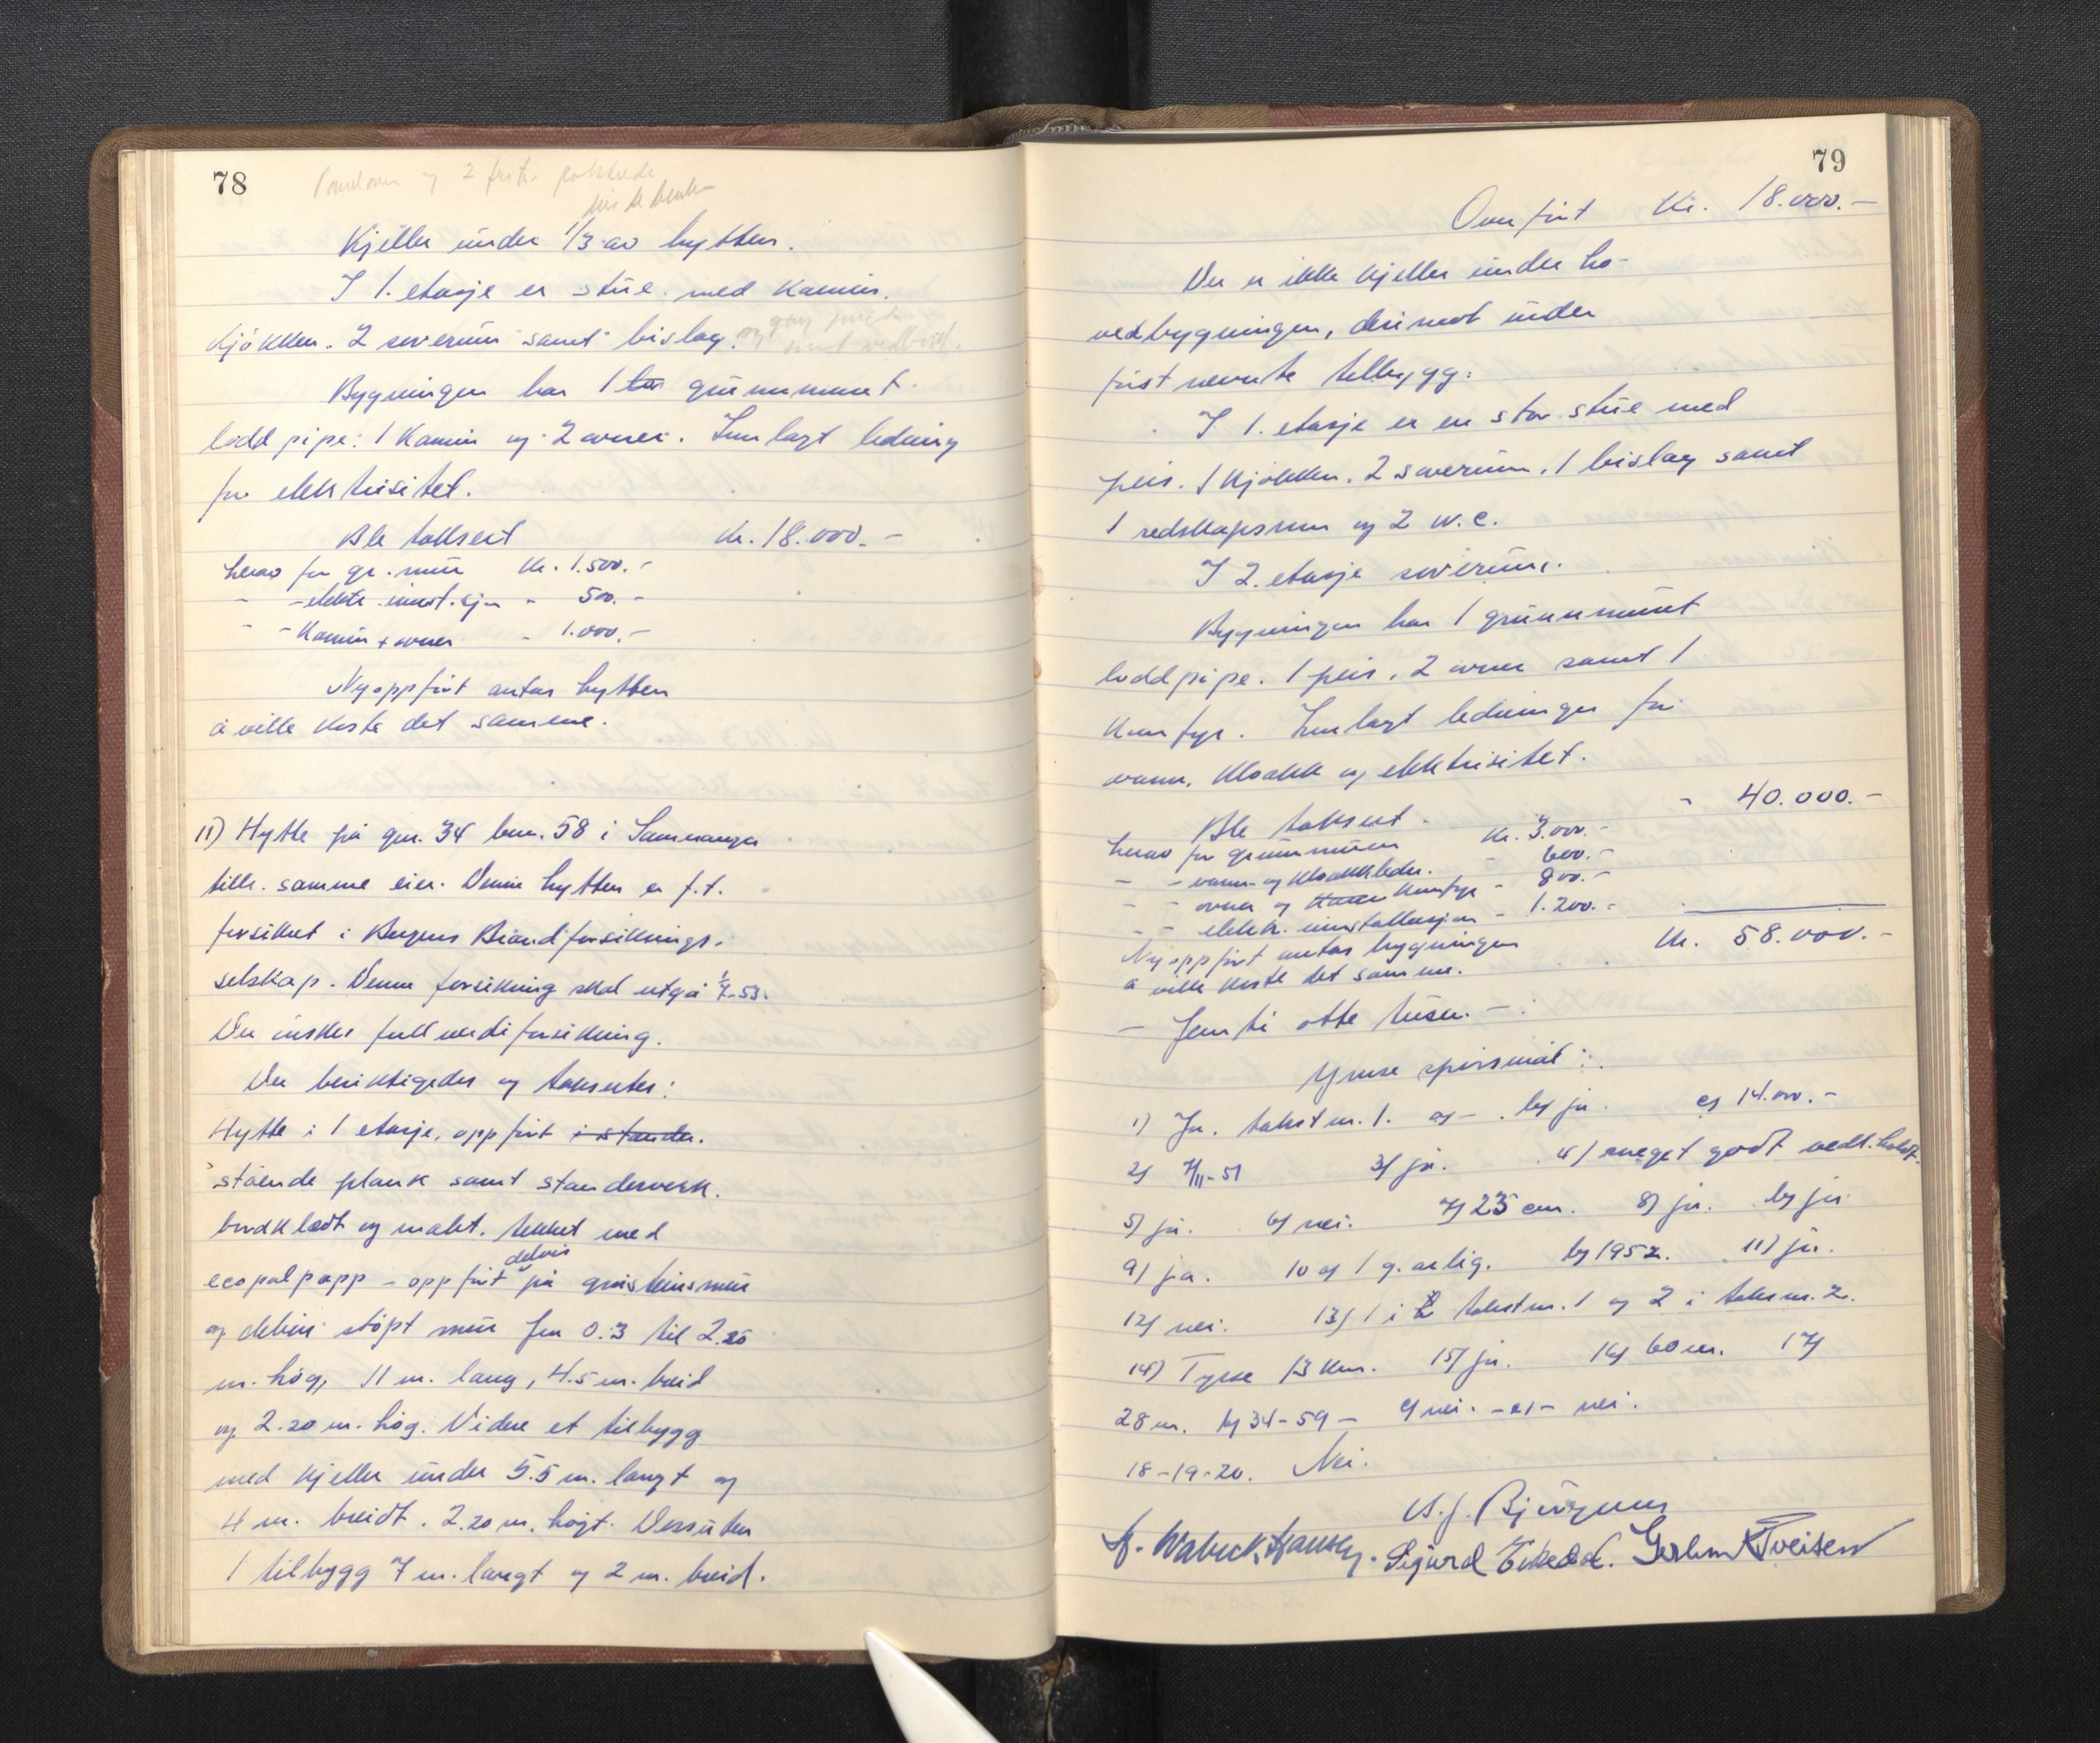 78
og 2
Kjeller under 1/3 av hytten.
I 1. etasje er stue med Kamin.
Kjökken. 2 soverum samt bislag. og gang
samt vedbod.
Bygningen har 1 grunnmuret
loddpipe: 1 Kamin og 2 ovner. Innlagt ledning
for elektrisitet.
Ble taksert Kr. 18.000.-
herav for gr. mur Kr. 1.500.-
- - elektr. innst.sjon - 500.-
- - Kamin + ovner - 1.000.-
Nyoppfört antas hytten
å ville koste det samme.
11) Hytte på gnr. 34 bnr. 58 i Samnanger
tilh. samme eier. Denne hytten er f.t.
forsikret i Bergens Brandforsiknings-
selskap. Denne forsikring skal utgå 1/7-53.
Der önskes full verdiforsikring.
Der besiktigedes og taksertes:
Hytte i 1 etasje, oppfört i stander.
stående plank samt standerverk.
bordklædt og malt. tekket med
delvis
ecopalpapp - oppfört på gråsteinsmur
og delvis stöpt mur fra 0.3 til 2.20
m. hög, 11 m. lang, 4.5 m. breid
og 2.20 m. hög. Videre et tilbygg
med kjeller under 5.5 m. langt og
4 m. breidt. 2.20 m. högt. Dessuten
1 tilbygg 7 m. langt og 2 m. breid.
79
Overfört Kr. 18.000.-
Der er ikke kjeller under ho-
vedbygningen, derimot under
först nevnte tilbygg:
I 1. etasje er en stor stue med
peis. 1 Kjökken. 2 soverum. 1 bislag samt
1 redskapsrum og 2 w.c.
I 2. etasje soverum.
Bygningen har 1 grunnmuret
loddpipe. 1 peis, 2 ovner samt 1
Komfyr. Innlagt ledninger for
vann, kloakk og elektrisitet.
Ble taksert - 40.000.-
herav for grunnmuren Kr. 3.000.-
- - vann- og kloakkledn. - 600.-
- - ovner og Komfyr - 800.-
- - elektr. installasjon - 1.200.-
Nyoppfört antas bygningen Kr. 58.000.-
å ville koste det samme.
- Femti otte tusen. -
Ymse spörsmål:
1) Ja. takst nr. 1. a) - . b) ja. c) 14.000.-
2) 7/11-51 3) ja. 4) meget godt vedl.holdt.
5) ja. 6) nei. 7) 25 cm. 8) ja. b) ja
9) ja. 10 a) 1 g. årlig. b) 1952. 11) ja.
12) nei. 13) 1 i takst nr. 1 og 2 i takst nr. 2.
14) Tysse 13 km. 15) ja. 16) 60 m. 17)
28 m. b) 34-59- c) nei. - d) - nei.
18-19-20. Nei.